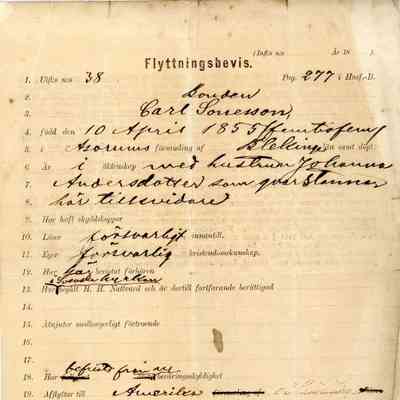 (Infks n:o År 18 ).
Flyttningsbevis.
1. Utfks n:o 38. Pag. 277 i Husf.-B.
2. Bonden
3. Carl Sonesson,
4. född den 10 April 1855 (femtiofem)
5. i Asarums församling af Bleking län samt döpt;
6. Är i äktenskap med hustrun Johanna
7. Andersdotter som qvar stannar
8. här tillsvidare
9. Har haft skyddskoppor
10. Läser försvarligt innantill.
11. Eger försvarlig kristendomskunskap.
12. Har här bevistat förhören
i kyrkan
13. Har begått H. H. Nattvard och är dertill fortfarande berättigad
14.
15. Åtnjuter medborgerligt förtroende
16.
17.
befriats från
18. Har beväringsskyldighet
19. Afflyttar till Amerika